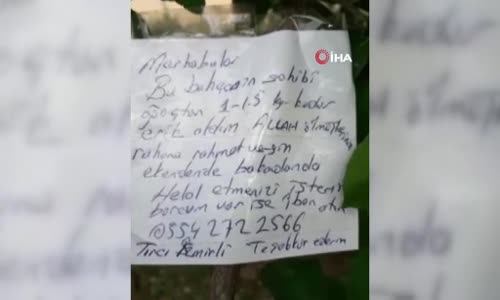 İHA
Merhabalar
Bu bahçenin sahibi
ağaçtan 1-1.5 kg kadar
erik aldım ALLAH
ruhuna rahmet versin
ekendende bakandanda
Helal etmenizi isterim
borcum var ise iban atın
0554 272 2566
Tırcı Teşekkür ederim